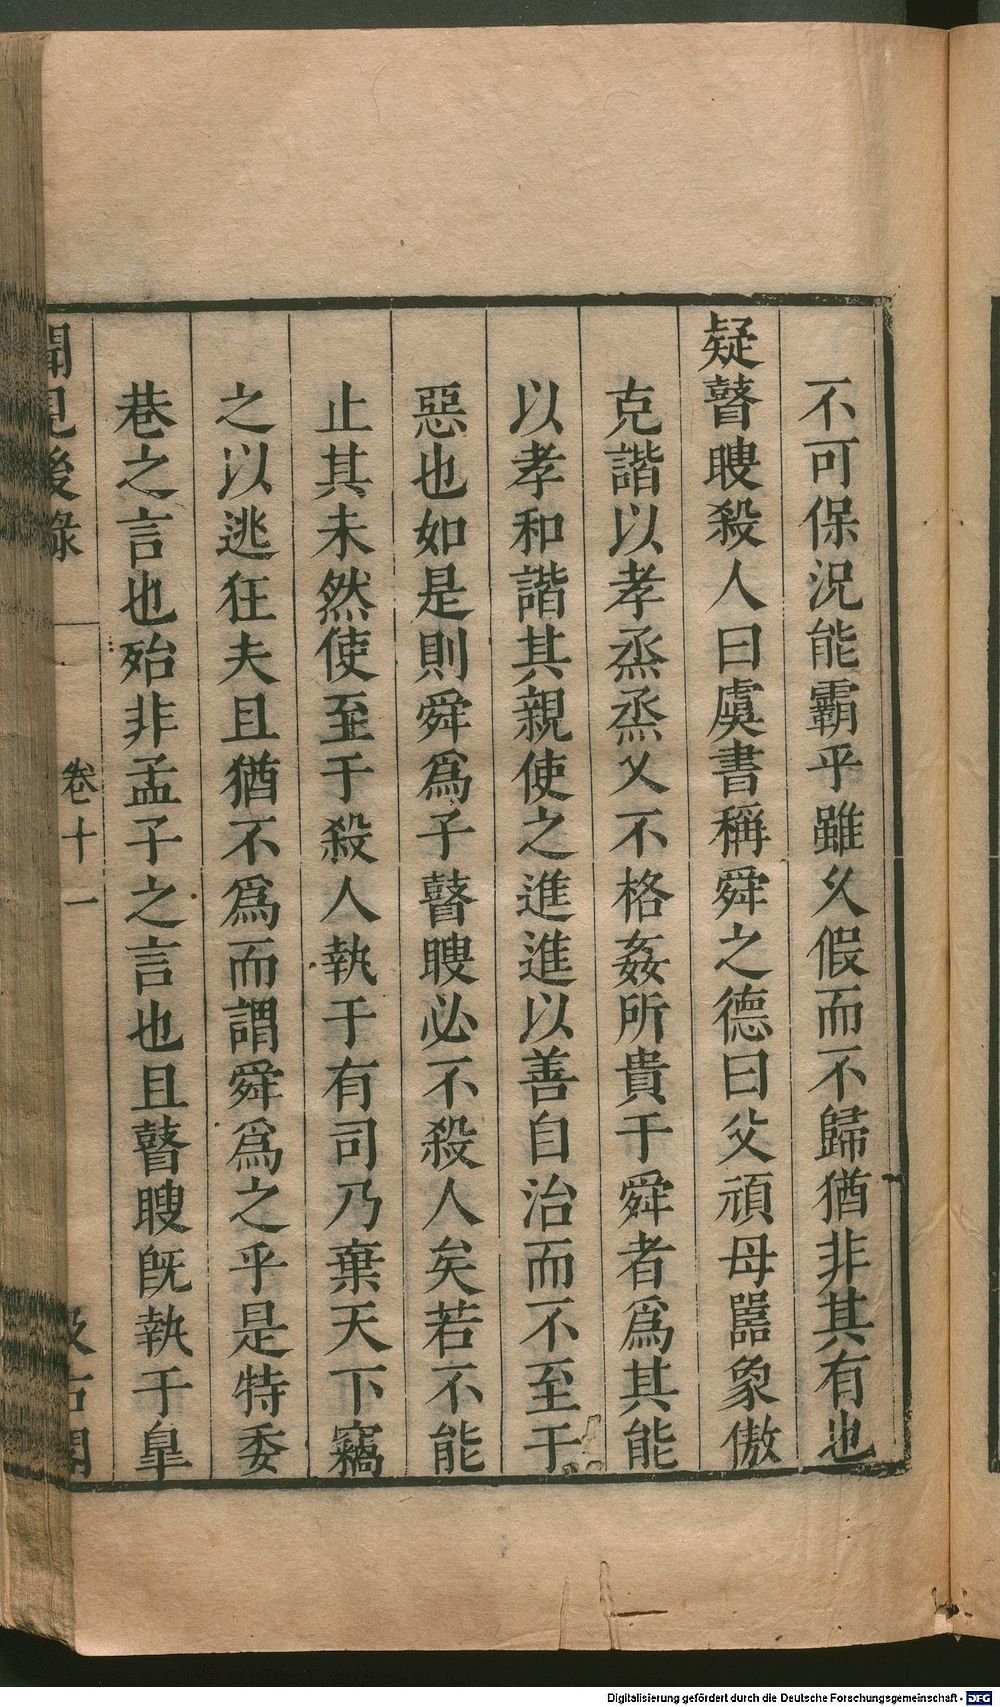 不可保況能霸乎雖久假而不歸猶非其有也
疑瞽瞍殺人曰虞書稱舜之德曰父頑母嚚象傲
克諧以孝烝烝乂不格姦所貴于舜者爲其能
以孝和諧其親使之進進以善自治而不至于
惡也如是則舜爲子瞽瞍必不殺人矣若不能
止其未然使至于殺人執于有司乃棄天下竊
之以逃狂夫且猶不爲而謂舜爲之乎是特委
巷之言也殆非孟子之言也且瞽瞍旣執于皐
聞見後錄 卷十一 汲古閣
Digitalisierung gefördert durch die Deutsche Forschungsgemeinschaft - DFG